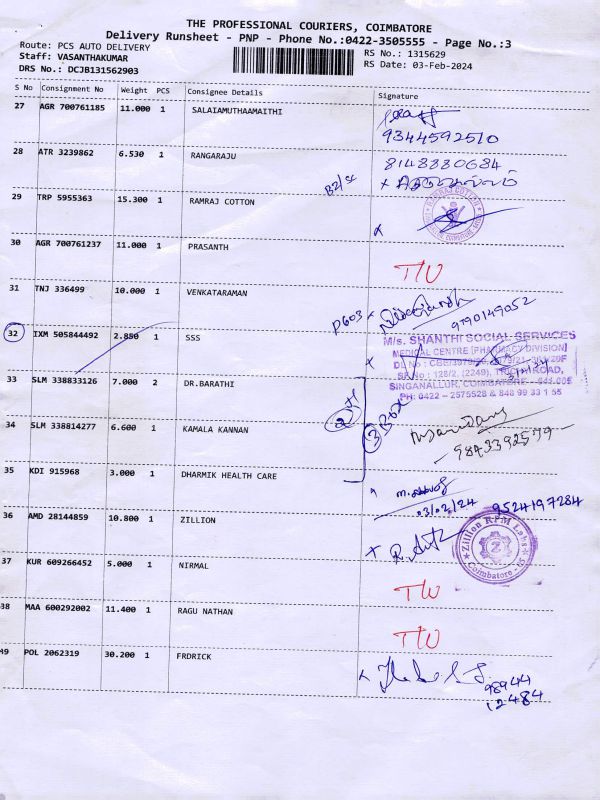 THE PROFESSIONAL COURIERS, COIMBATORE
Delivery Runsheet - PNP - Phone No.:0422-3505555 - Page No.:3
Route: PCS AUTO DELIVERY
RS No.: 1315629
Staff: VASANTHAKUMAR
RS Date: 03-Feb-2024
DRS No.: DCJB131562903
S No Consignment No Weight PCS Consignee Details Signature
27 AGR 700761185 11.000 1 SALAIAMUTHAAMAITHI
9344592510
28 ATR 3239862 6.530 1 RANGARAJU
8148880684
29 TRP 5955363 15.300 1 RAMRAJ COTTON
RAMRAJ COTTON
30 AGR 700761237 11.000 1 PRASANTH
T/U
31 TNJ 336499 10.000 1 VENKATARAMAN
9790149052
32 IXM 505844492 2.880 1 SSS
M/s. SHANTHI SOCIAL SERVICES
MEDICAL CENTRE [PHARMACY DIVISION]
SF.No : 128/2, (2249), TRICHY ROAD,
SINGANALLUR, COIMBATORE - 641 005
PH: 0422 - 2575528 & 848 99 33 1 55
33 SLM 338833126 7.000 2 DR.BARATHI
34 SLM 338814277 6.600 1 KAMALA KANNAN
3 Box
9873392579
35 KDI 915968 3.000 1 DHARMIK HEALTH CARE
03/02/24
9524197284
36 AMD 28144859 10.800 1 ZILLION
Zillion RPM Labs
Coimbatore
37 KUR 609266452 5.000 1 NIRMAL
T/U
38 MAA 600292002 11.400 1 RAGU NATHAN
T/U
49 POL 2062319 30.200 1 FRDRICK
98944
12484